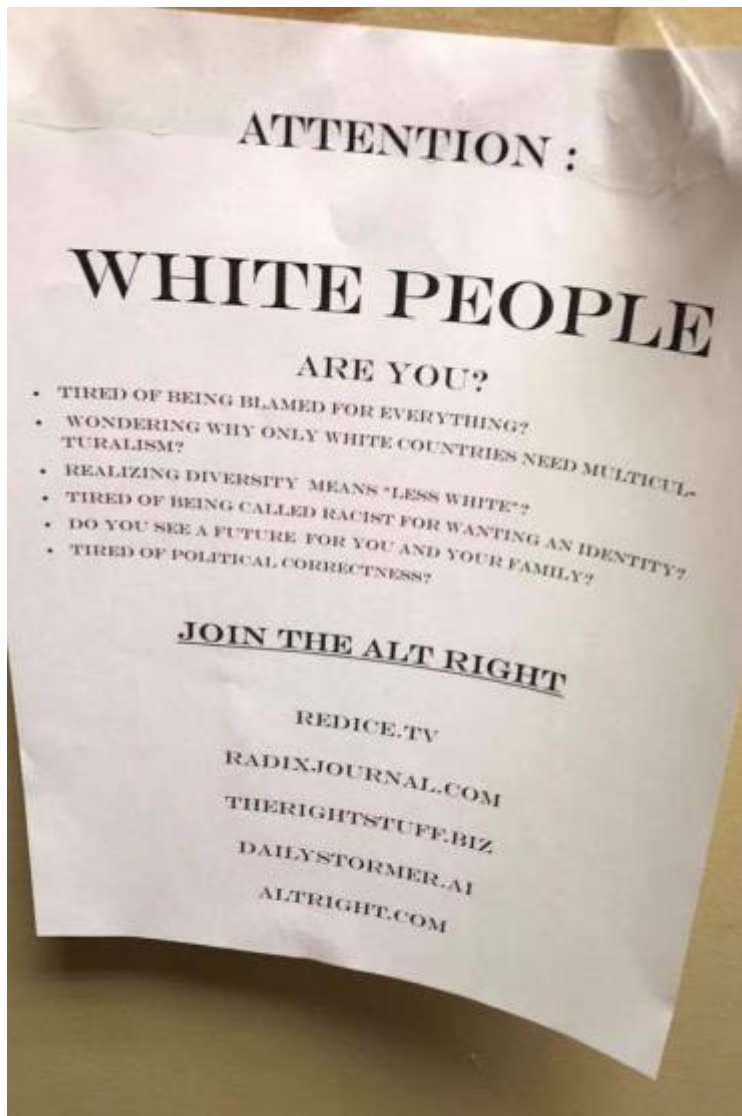 ATTENTION :
WHITE PEOPLE
ARE YOU?
• TIRED OF BEING BLAMED FOR EVERYTHING?
• WONDERING WHY ONLY WHITE COUNTRIES NEED MULTICUL-
TURALISM?
• REALIZING DIVERSITY MEANS "LESS WHITE"?
• TIRED OF BEING CALLED RACIST FOR WANTING AN IDENTITY?
• DO YOU SEE A FUTURE FOR YOU AND YOUR FAMILY?
• TIRED OF POLITICAL CORRECTNESS?
JOIN THE ALT RIGHT
REDICE.TV
RADIXJOURNAL.COM
THERIGHTSTUFF.BIZ
DAILYSTORMER.AI
ALTRIGHT.COM